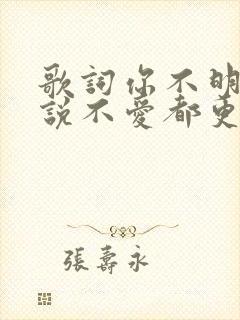 歌詞你不明
說不愛都更
張壽永